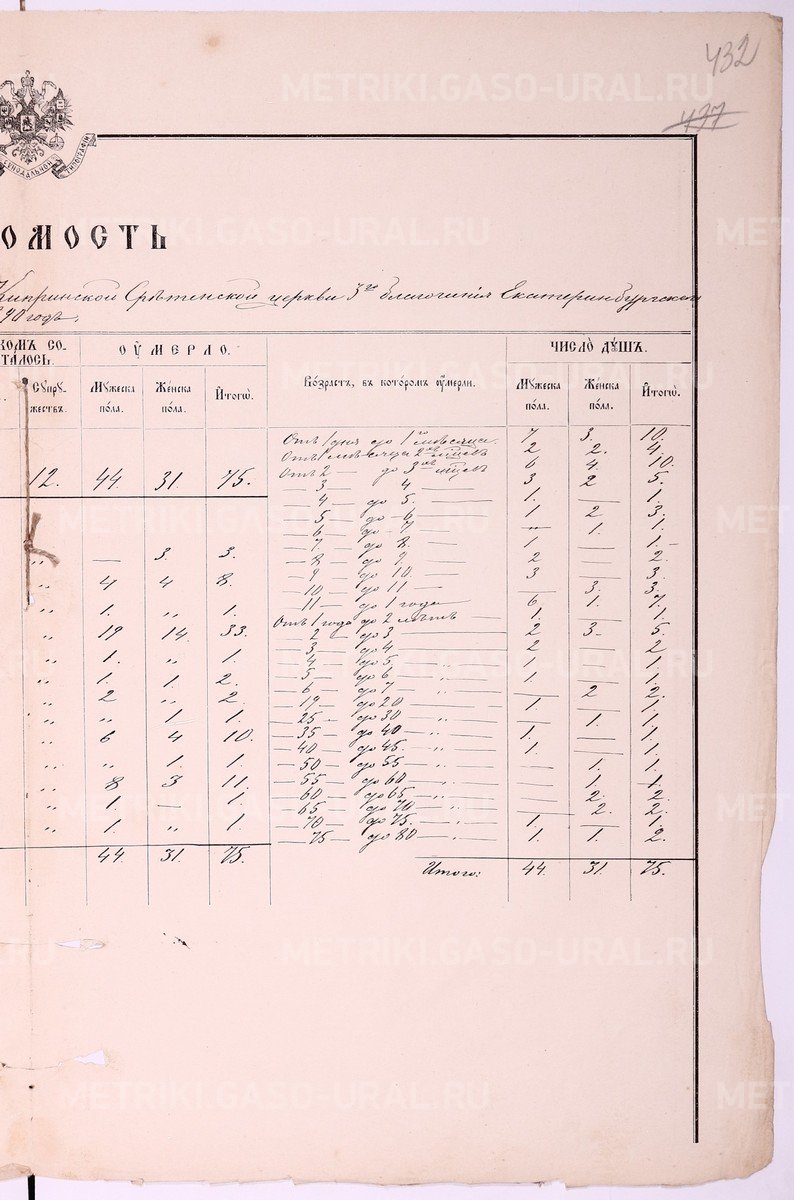 432
497
СѴНОДАЛЬНОЙ ТИПОГРАФІИ
ОМОСТЬ
Кипринской Срѣтенской церкви 3го благочинія Екатеринбургскаго
890 года.
КОМЪ СО-
ТАЛОСЬ. ОУ҆МЕРЛО. ЧИСЛО̀ ДꙊШЪ.
Сꙋпрꙋ-
жествъ. Мꙋжеска
по́ла. Же́нска
по́ла. И҆того̀. Во́зрастъ, въ кото́ромъ оу҆́мерли. Мꙋжеска
по́ла. Же́нска
по́ла. И҆того̀.
12. 44. 31. 75.
„ — 3. 3.
„ 4 4 8.
„ 1. „ 1.
„ 19 14. 33.
„ 1. „ 1.
„ 1. 1. 2.
„ 2 „ 2.
„ „ 1 1.
„ 6 4 10.
„ „ 1. 1.
„ 8 3 11.
„ 1. — 1.
„ 1. „ 1.
44. 31. 75.
Отъ 1 дня до 1го мѣсяца. 7 3. 10.
Отъ 1 мѣсяца 2хъ мѣсяцъ 2 2. 4.
Отъ 2 — до 3хъ мѣсяцъ 6 4. 10.
— 3 — 4 — 3 2 5.
— 4 — до 5. — 1. — 1.
— 5 — до 6 — 1 2 3.
— 6 — до 7 — „ 1. 1.
— 7 — до 8 — 1. — 1.
— 8 — до 9 — 2 — 2.
— 9 — до 10. — 3 — 3.
— 10 — до 11 — — 3. 3.
— 11 — до 1 года — 6 1. 7.
Отъ 1 года до 2 лѣтъ — 1. — 1.
— 2 — до 3 — 2 3. 5.
— 3 — до 4 — 2 — 2
— 4 — до 5 — 1 — 1.
— 5 — до 6 — 1. — 1.
— 6 — до 7 — — 2 2.
— 19 — до 20 — 1. — 1.
— 25 — до 30 — — 1. 1.
— 35 — до 40 — 1. — 1.
— 40 — до 45. — 1. — 1.
— 50 — до 55 — — 1. 1.
— 55 — до 60 — — 1. 1.
— 60 — до 65 — — 2. 2.
— 65 — до 70 — — 2. 2.
— 70 — до 75. — 1. — 1.
— 75 — до 80 — 1. 1. 2.
Итого: 44. 31. 75.
METRIKI.GASO-URAL.RU